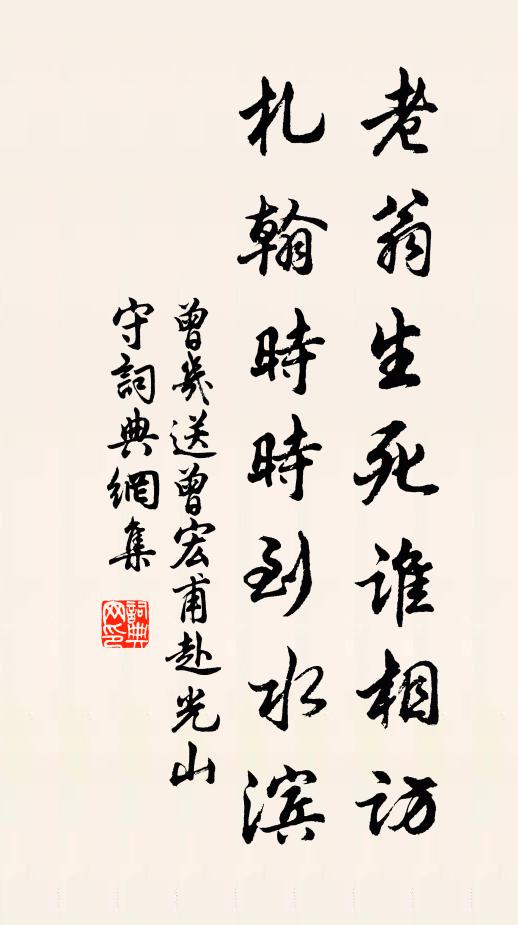 老翁生死谁相訪
札翰時時到水滨
曾幾送曾宏甫赴光山
守詞典網集
詞典網印